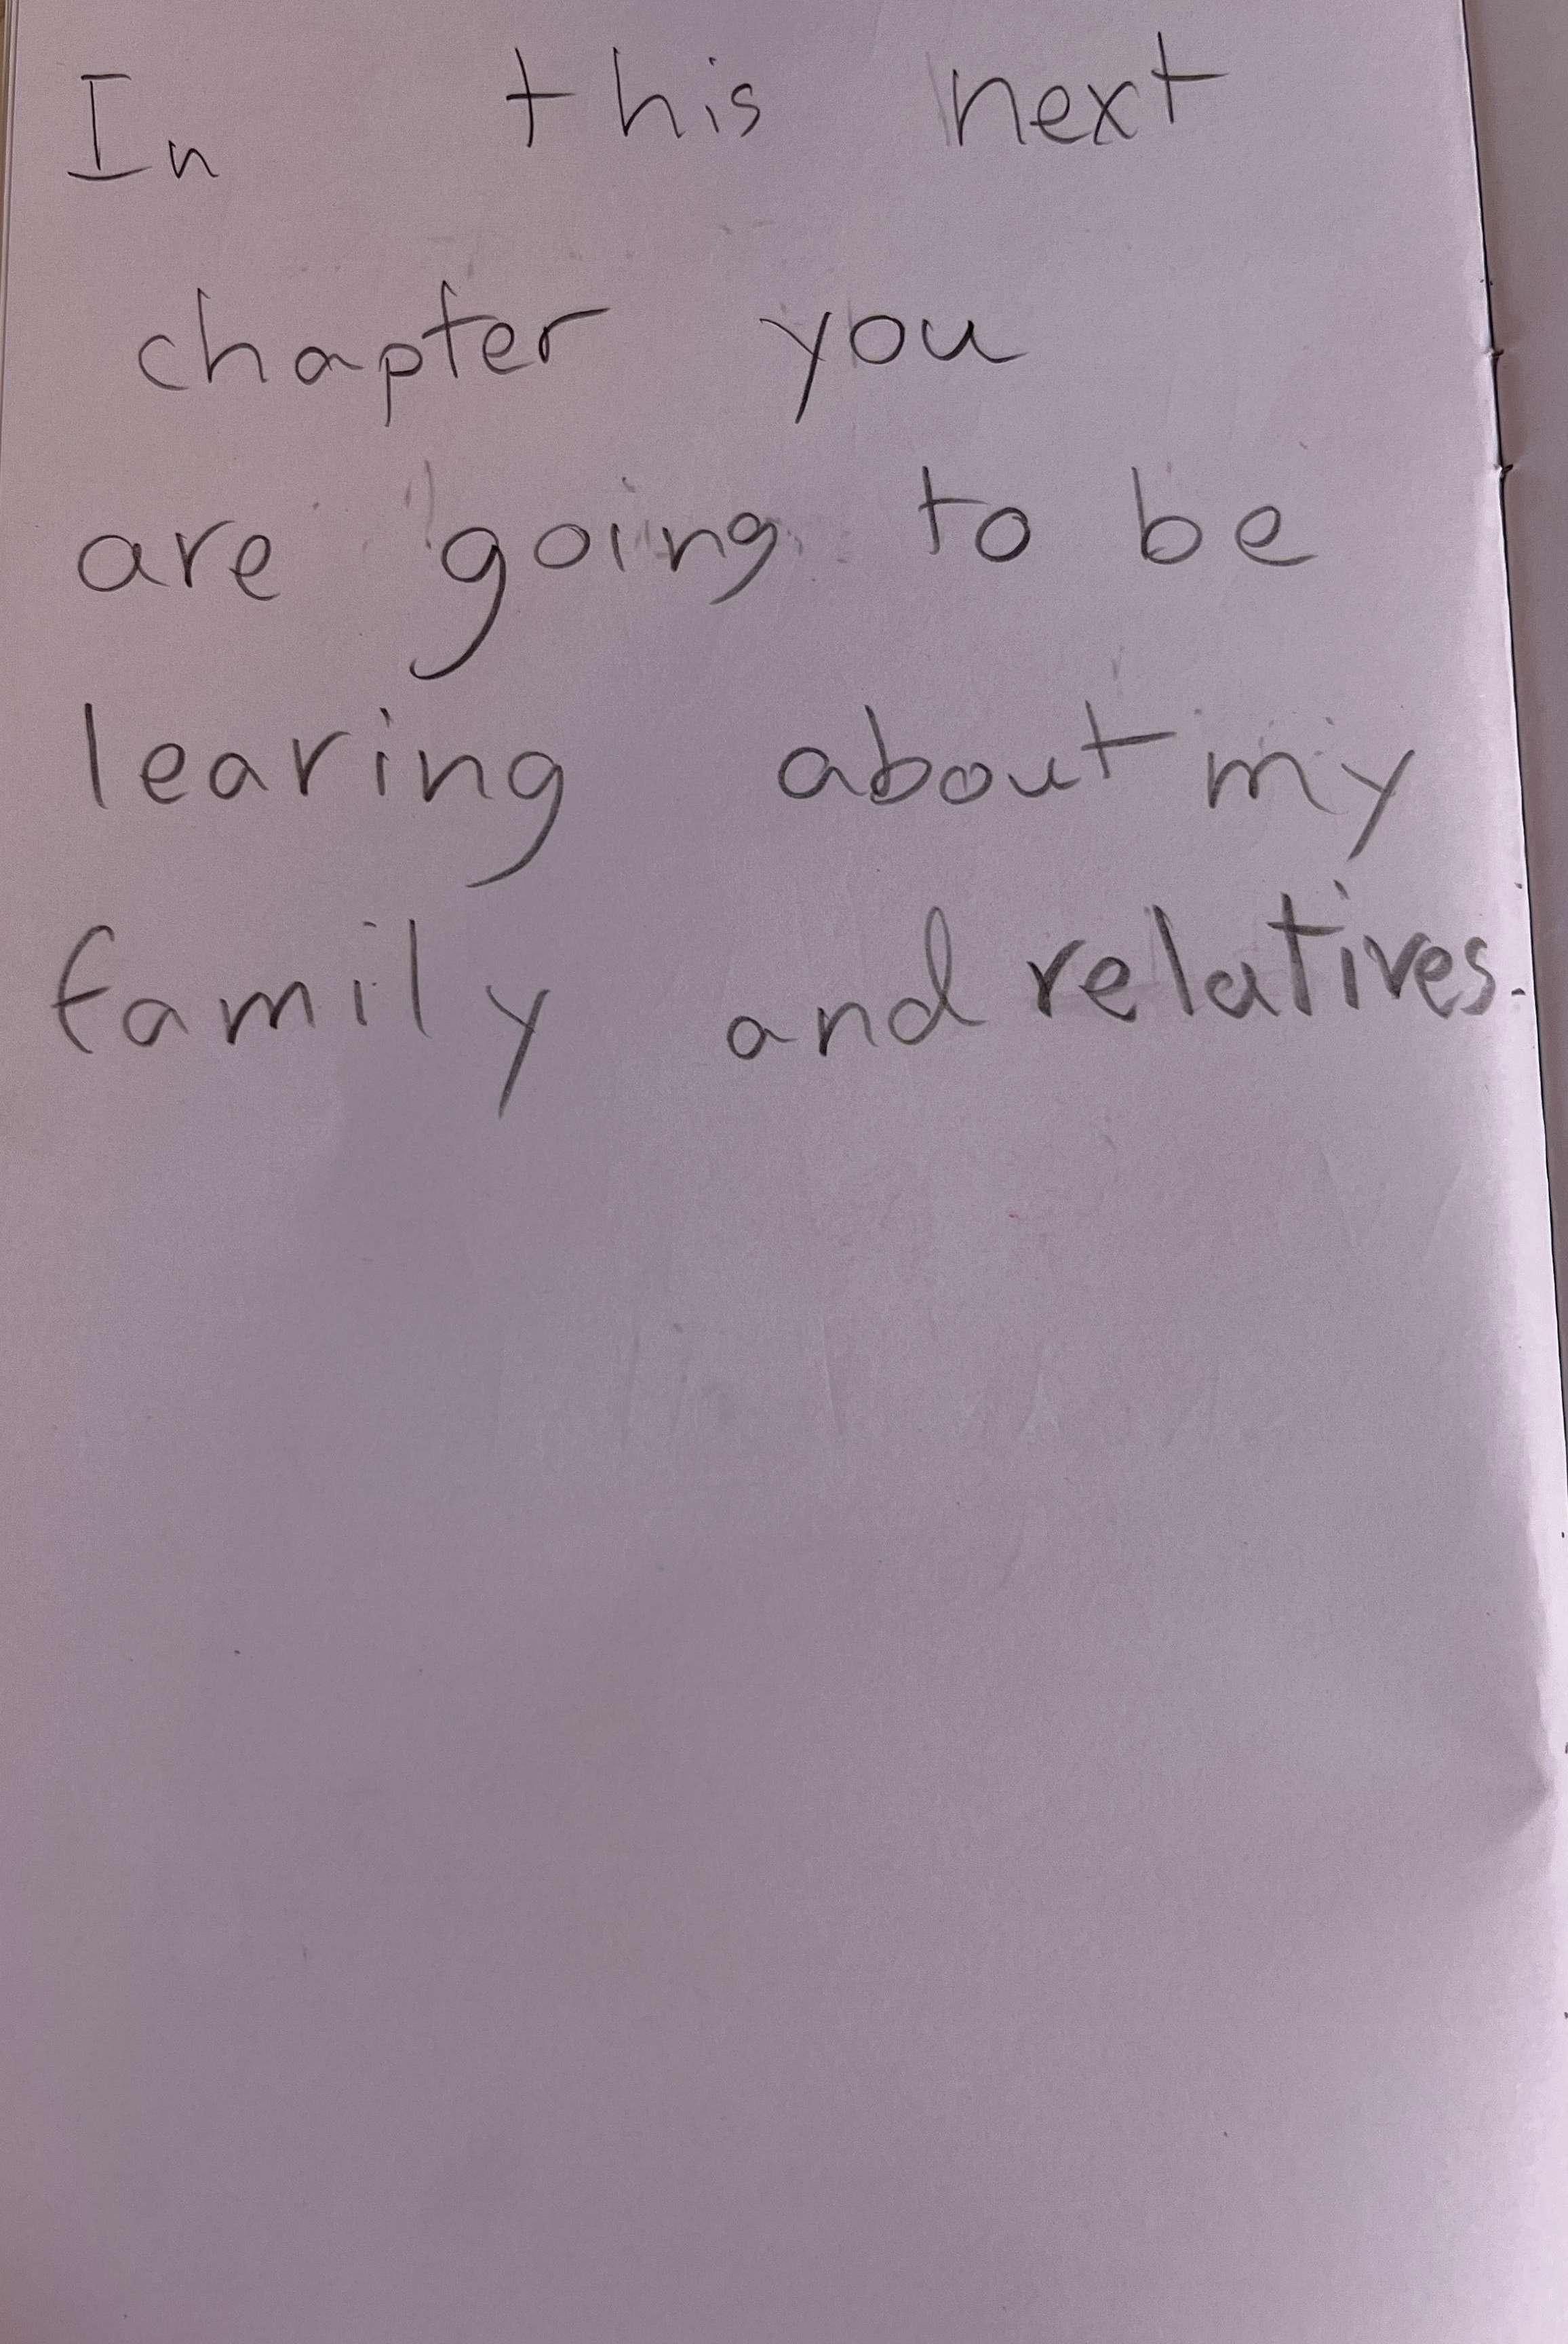 In this next
chapter you
are going to be
learing about my
family and relatives.